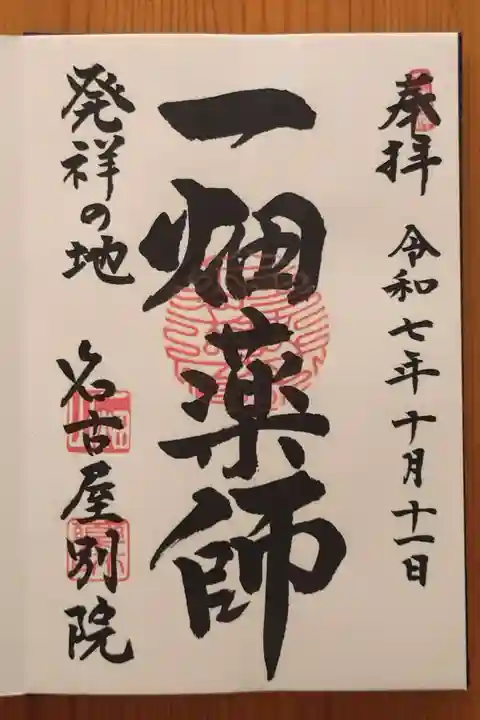 奉拝 令和七年十月十一日
一畑薬師
発祥の地 名古屋別院